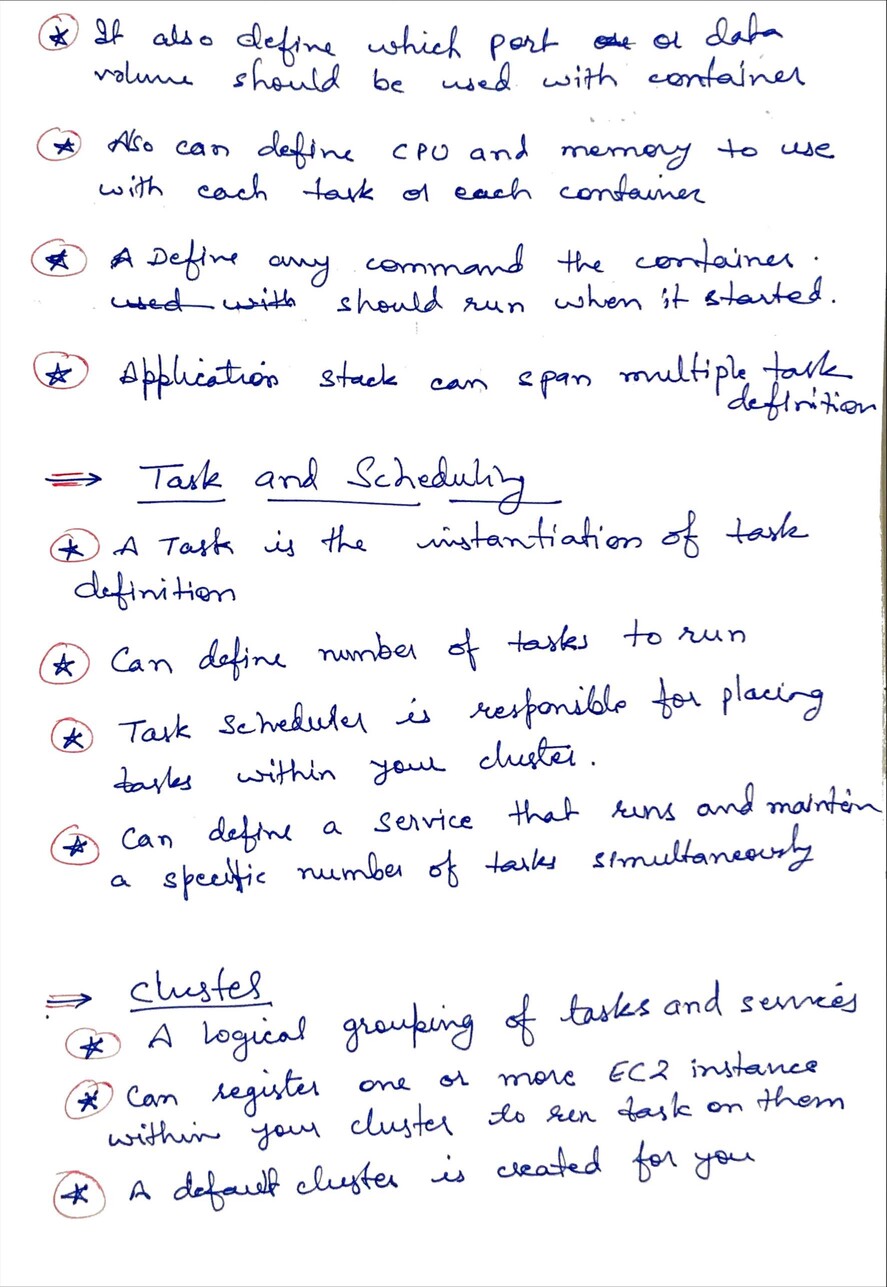 It also define which port or data
volume should be used with container
Also can define CPU and memory to use
with each task or each container
Define any command the container.
used with should run when it started.
Application stack can span multiple task
definition
⇒ Task and Scheduling
A Task is the instantiation of task
definition
Can define number of tasks to run
Task Scheduler is responsible for placing
tasks within your cluster.
Can define a service that runs and maintén
a specific number of tasks simultaneously
⇒ Cluster
A logical grouping of tasks and services
Can register one or more EC2 instance
within your cluster to run task on them
A default cluster is created for you